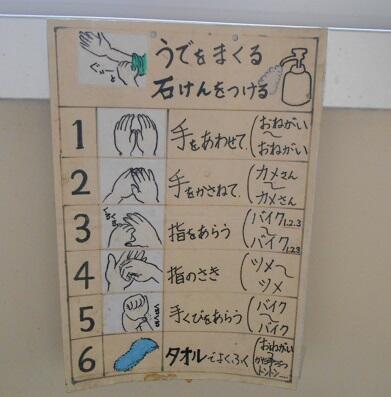 ぐいーと
うでをまくる
石けんをつける
1 手をあわせて (おねがい
〜
おねがい
2 手をかさねて (カメさん
〜
カメさん
3 指をあらう (バイク1.2.3
〜
バイク1.2.3
4 指のさき (ツメ〜
ツメ
5 手くびをあらう (バイク
〜
バイク
6 タオルでよくふく (おねがい
トントン